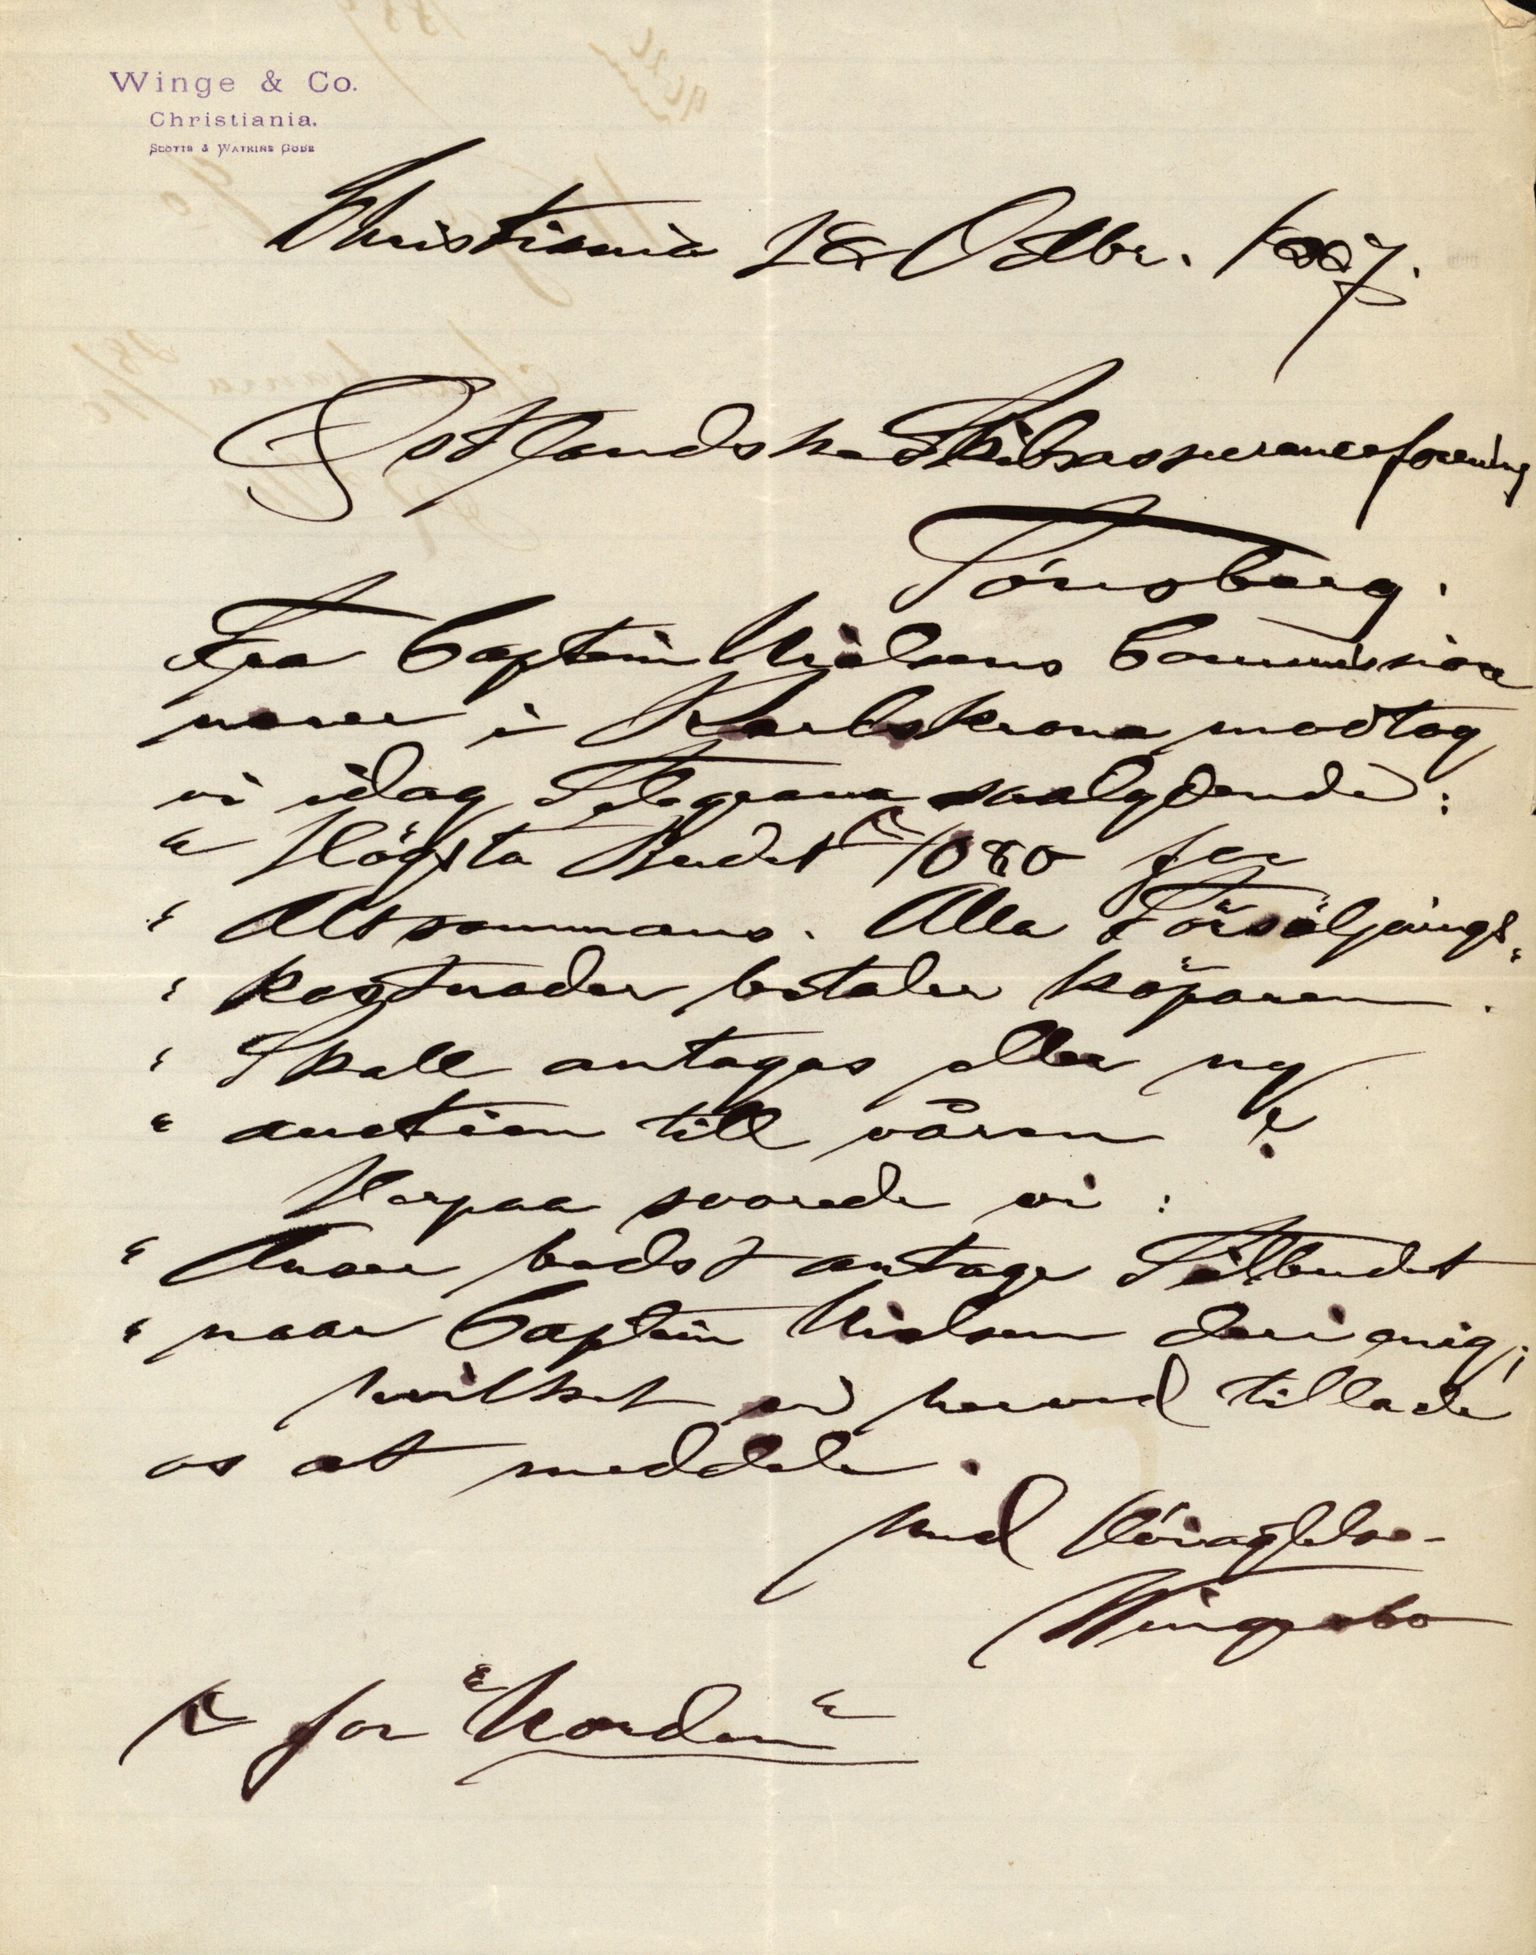 Winge & Co.
Christiania.
Scotts & Watkins Code
Christiania 28 Octbr. 1887.
Östlandske Skibsassuranceforening
Tönsberg.
Fra Captein Nielsens Commissio
nærer i Karlskrona modtog
vi idag Telegram saalydende:
" Högsta Budet 1080 for
" Altsammans. Alla Försäljnings-
" kostnader betaler köparen.
" Skall antagas eller ny
" auction till våren ?
Herpaa svarede vi :
" Anser bedst antage Tilbudet
" naar Captein Nielsen deri enig;
hvilket vi herved tillade
os at meddele.
Med Höiagtelse
Winge & Co
for "Norden"